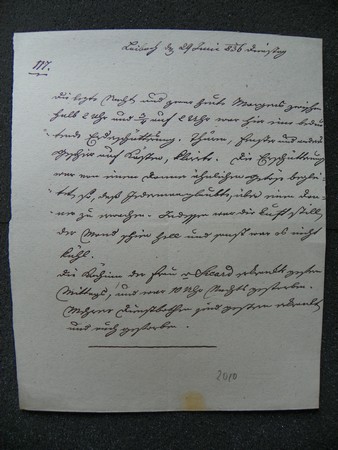 Laibach den 29 Junie 836 Dienstag
117.
Die lezte Nacht und zwar heute Morgens zwischen
halb 2 Uhr und 3/4 auf 2 Uhr war hier eine bedeu-
tende Erderschütterung. Thüren, Fenster und anderes
Geschirr auf Kästen, klirrte. Die Erschütterung
war von einem Donner ähnlichen Getöse beglei-
tet, so, daß Jedermann glaubte, über einen Don-
ner zu erwachen. Indessen war die Luft still,
der Mond schien hell und sonst war es nicht
kühl.
Die Köchin der Frau v. erkrankte gestern
Mittags, und war 10 Uhr Nachts gestorben.
Mehrere Dienstbothen sind gestern erkrankt
und auch gestorben.
2010